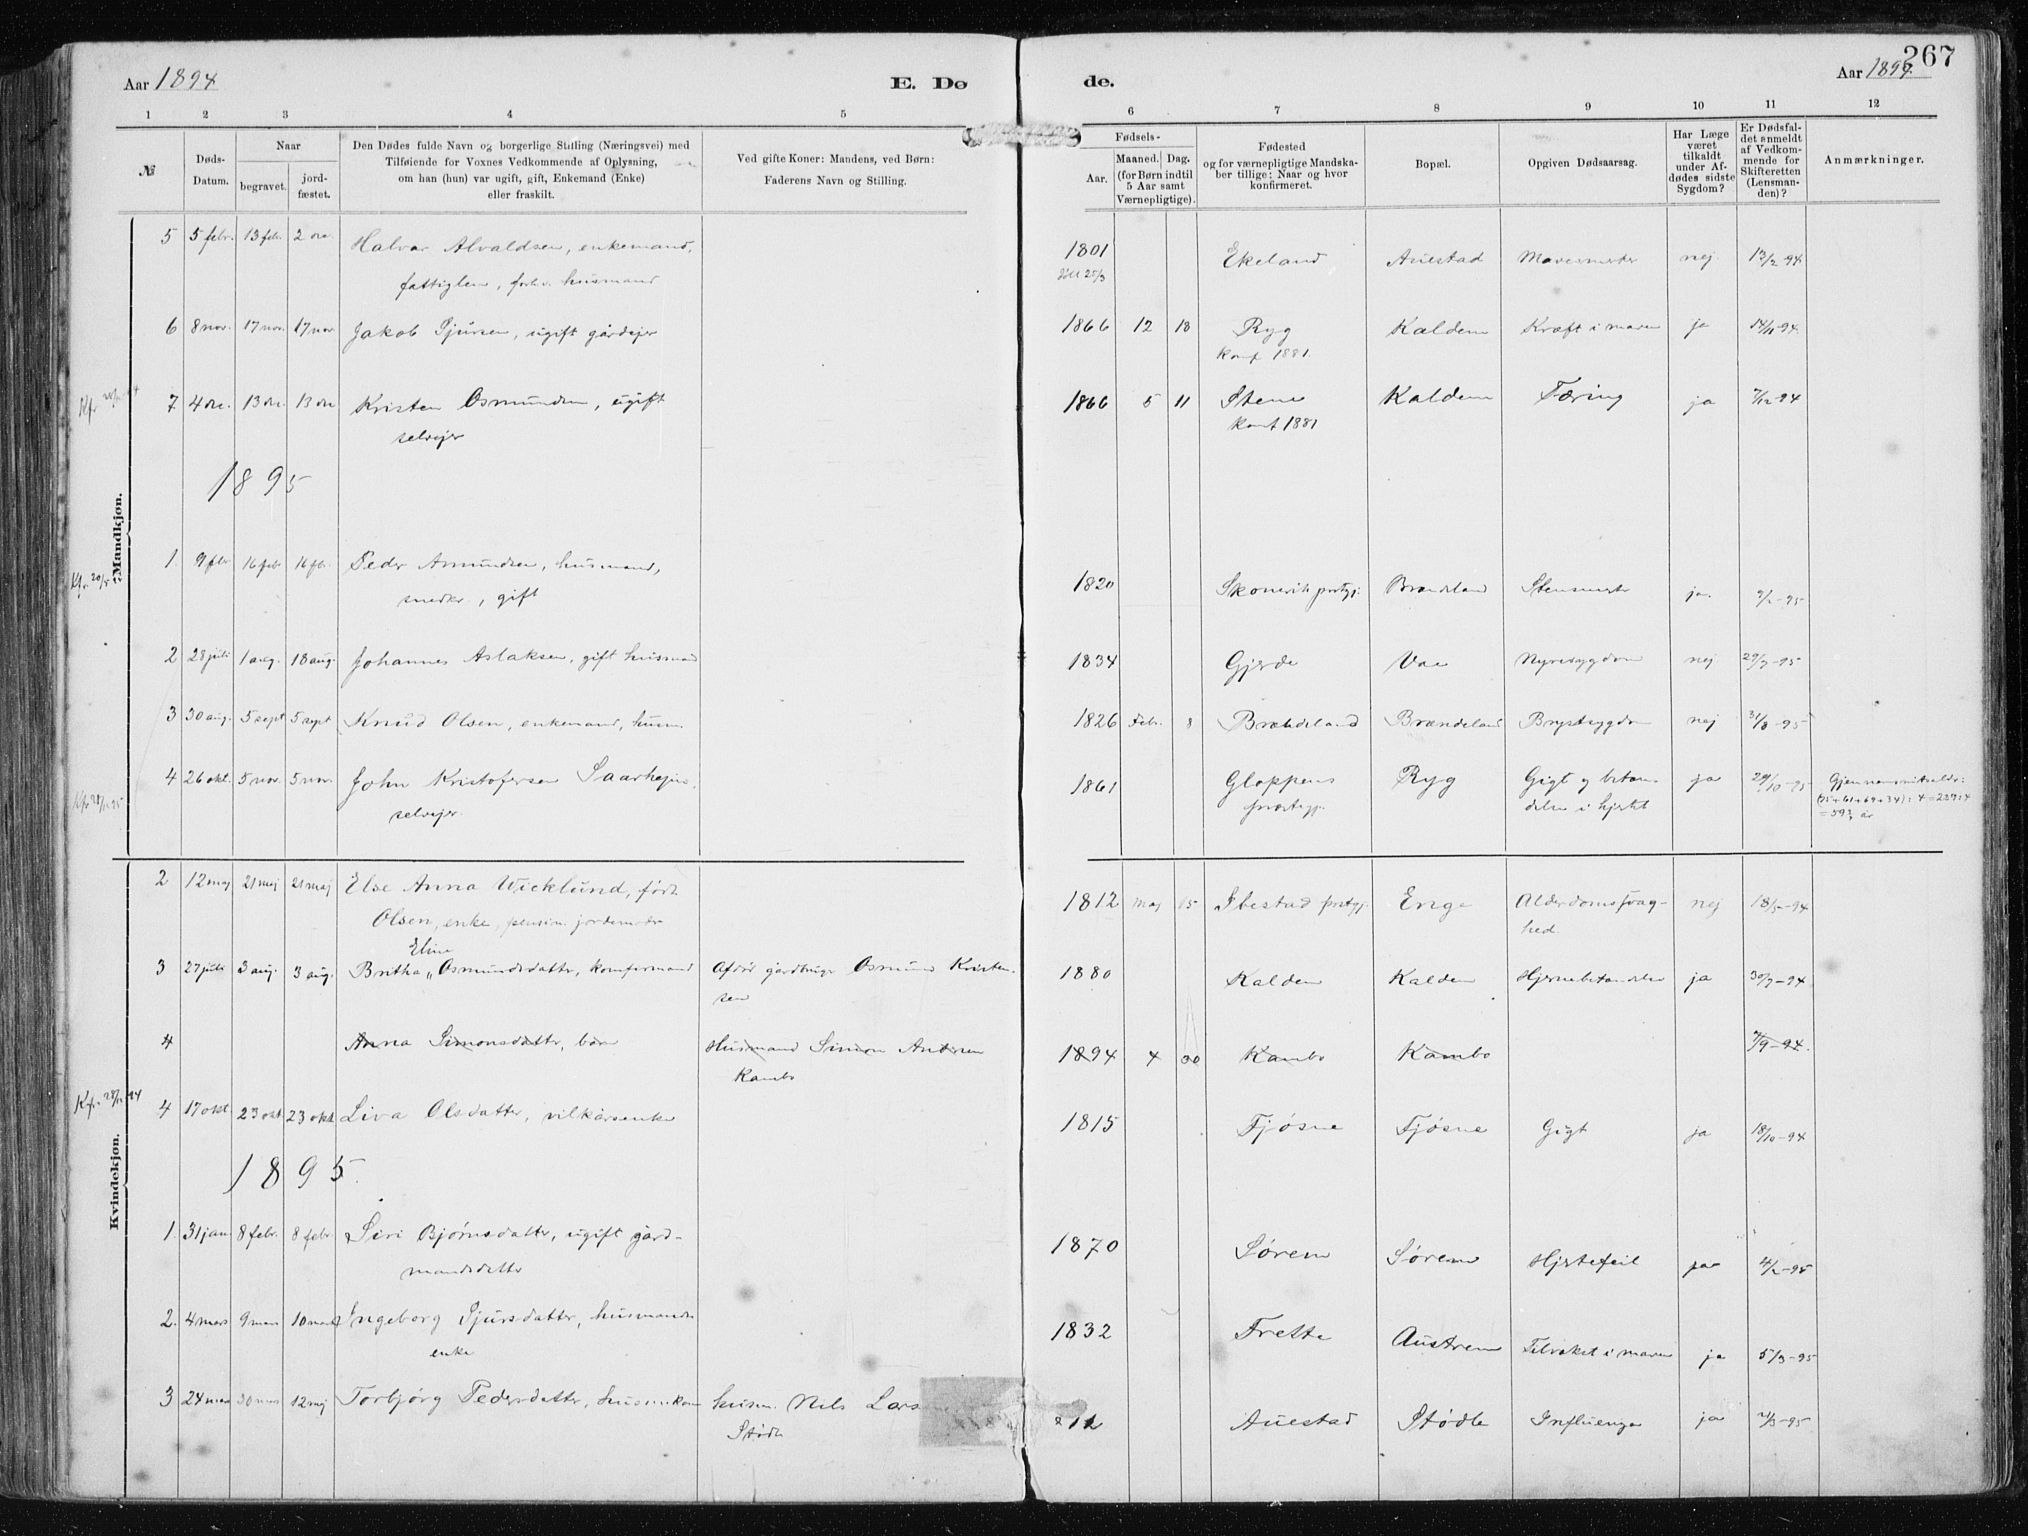 267
Aar 1894
E. Dø
de.
Aar 1894.
1 2 3 4 5 6 7 8 9 10 11 12
№
Døds-
Datum.
Naar
begravet.
jord-
fæstet.
Den Dødes fulde Navn og borgerlige Stilling (Næringsvei) med
Tilføiende for Voxnes Vedkommende af Oplysning,
om han (hun) var ugift, gift, Enkemand (Enke)
eller fraskilt.
Ved gifte Koner: Mandens, ved Børn:
Faderens Navn og Stilling.
Fødsels-
Aar.
Maaned. Dag.
(for Børn indtil
5 Aar samt
Værnepligtige).
Fødested
og for værnepligtige Mandska-
ber tillige: Naar og hvor
konfirmeret.
Bopæl.
Opgiven Dødsaarsag.
Har Læge
været
tilkaldt
under Af-
dødes sidste
Sygdom?
Er Dødsfal-
det anmeldt
af Vedkom-
mende for
Skifteretten
(Lensman-
den)?
Anmærkninger.
Mandkjøn.
5 5 febr. 13 febr. 2 Halvar Alvaldsen, enkemand, 1801 Ekeland Auestad nej 13/2 94
fattiglem, husmand
6 8 nov. 17 nov. 17 nov Jakob Sjursen, ugift gårdejer 1866 12 18 Ryg Kaldem Kræft i maven ja 14/11-94.
konf 1881.
7 4 dec. 13 dec. 13 dec Kristen Osmundsen, ugift 1866 5 11 Stene Kaldem Tæring ja 7/12-94
selvejer konf 1881
1895
1. 9 febr 16 febr 16 fb. Peder Amundsen, husmand, 1820 Brændeland ja. 9/2-95
snedker, gift
2 28 juli 1 aug. 18 aug. Johannes Aslaksen, gift husmand 1834 Gjerde Vae Nyresygdom nej 29/7-95
3 30 aug. 5 sept 5 sept Knud Olsen, enkemand, husm. 1826 Febr. 8 Brændeland Brændeland Brystsygdom nej 31/8-95
4 26 okt. 5 nov. 5 nov. John Kristofersen Saarheim, 1861 Gloppens Ryg Gigt og betæn- ja 29/10-95 Gjennemsnitsalder:
selvejer. præstegj. delse i hjertet (75+61+69+34): 4=239:4
Kvindekjøn.
2 12 maj 21 maj 21 maj Else Anna Wicklund, født 1812 Maj 15 Ibestad prstgj. Enge Alderdomssvag- nej 18/5-94
Olsen, enke, pension. jordemoder hed.
Eline
3 27 juli 3 aug. 3 aug. Britha „ Osmundsdatter, konfirmand Afdød gårdbruger Osmund Kristen- 1880 Kaldem Kaldem Hjernebetændelse ja 30/7-94
sen
4 Anna Simonsdatter, barn Husmand Simon Andersen 1894 4 30 Kambo Kambo 7/9-94.
Kambo
4 17 okt. 23 okt. 23 okt Liva Olsdatter, vilkårsenke 1815 Fjøsne Fjøsne Gigt ja 18/10-94
1895.
1. 31 jan. 8 febr. 8 febr. Siri Bjørnsdatter, ugift gård- 1870 Sørem Sørem Hjertefeil ja 4/2-95
mandsdatter
2. 4 mars 9 mars 10 mars Ingeborg Sjursdatter, husmands 1832 Frette Austrem ja 5/3-95
enke
3 24 mars 30 mars 12 maj Torbjørg Pedersdatter, husm.kone husm. Nils Lars Auestad Stødle Influenza ja
Stødle